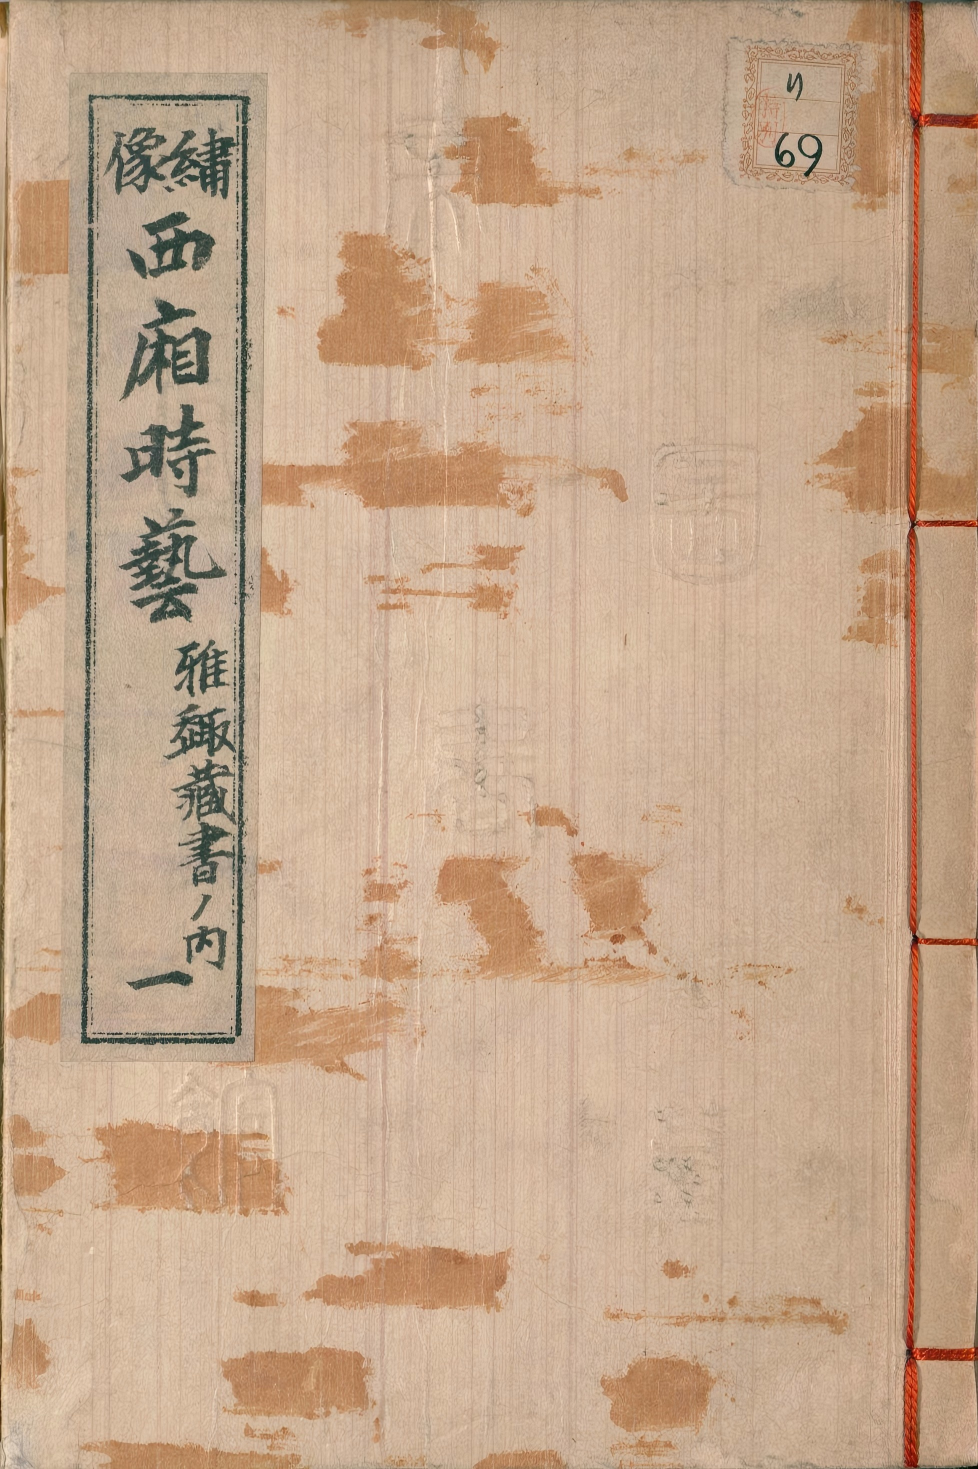 り
69
繡像
西廂時藝
雅趣藏書ノ内
一